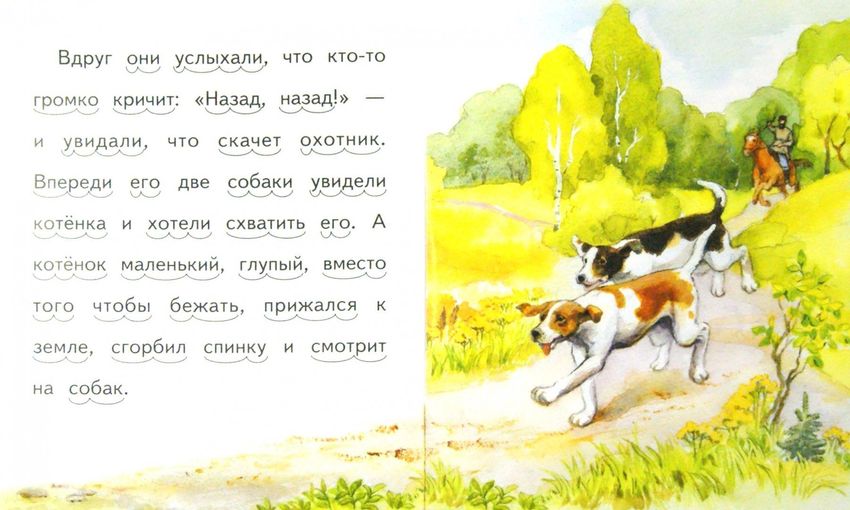 Вдруг они услыхали, что кто-то
громко кричит: «Назад, назад!» —
и увидали, что скачет охотник.
Впереди его две собаки увидели
котёнка и хотели схватить его. А
котёнок маленький, глупый, вместо
того чтобы бежать, прижался к
земле, сгорбил спинку и смотрит
на собак.